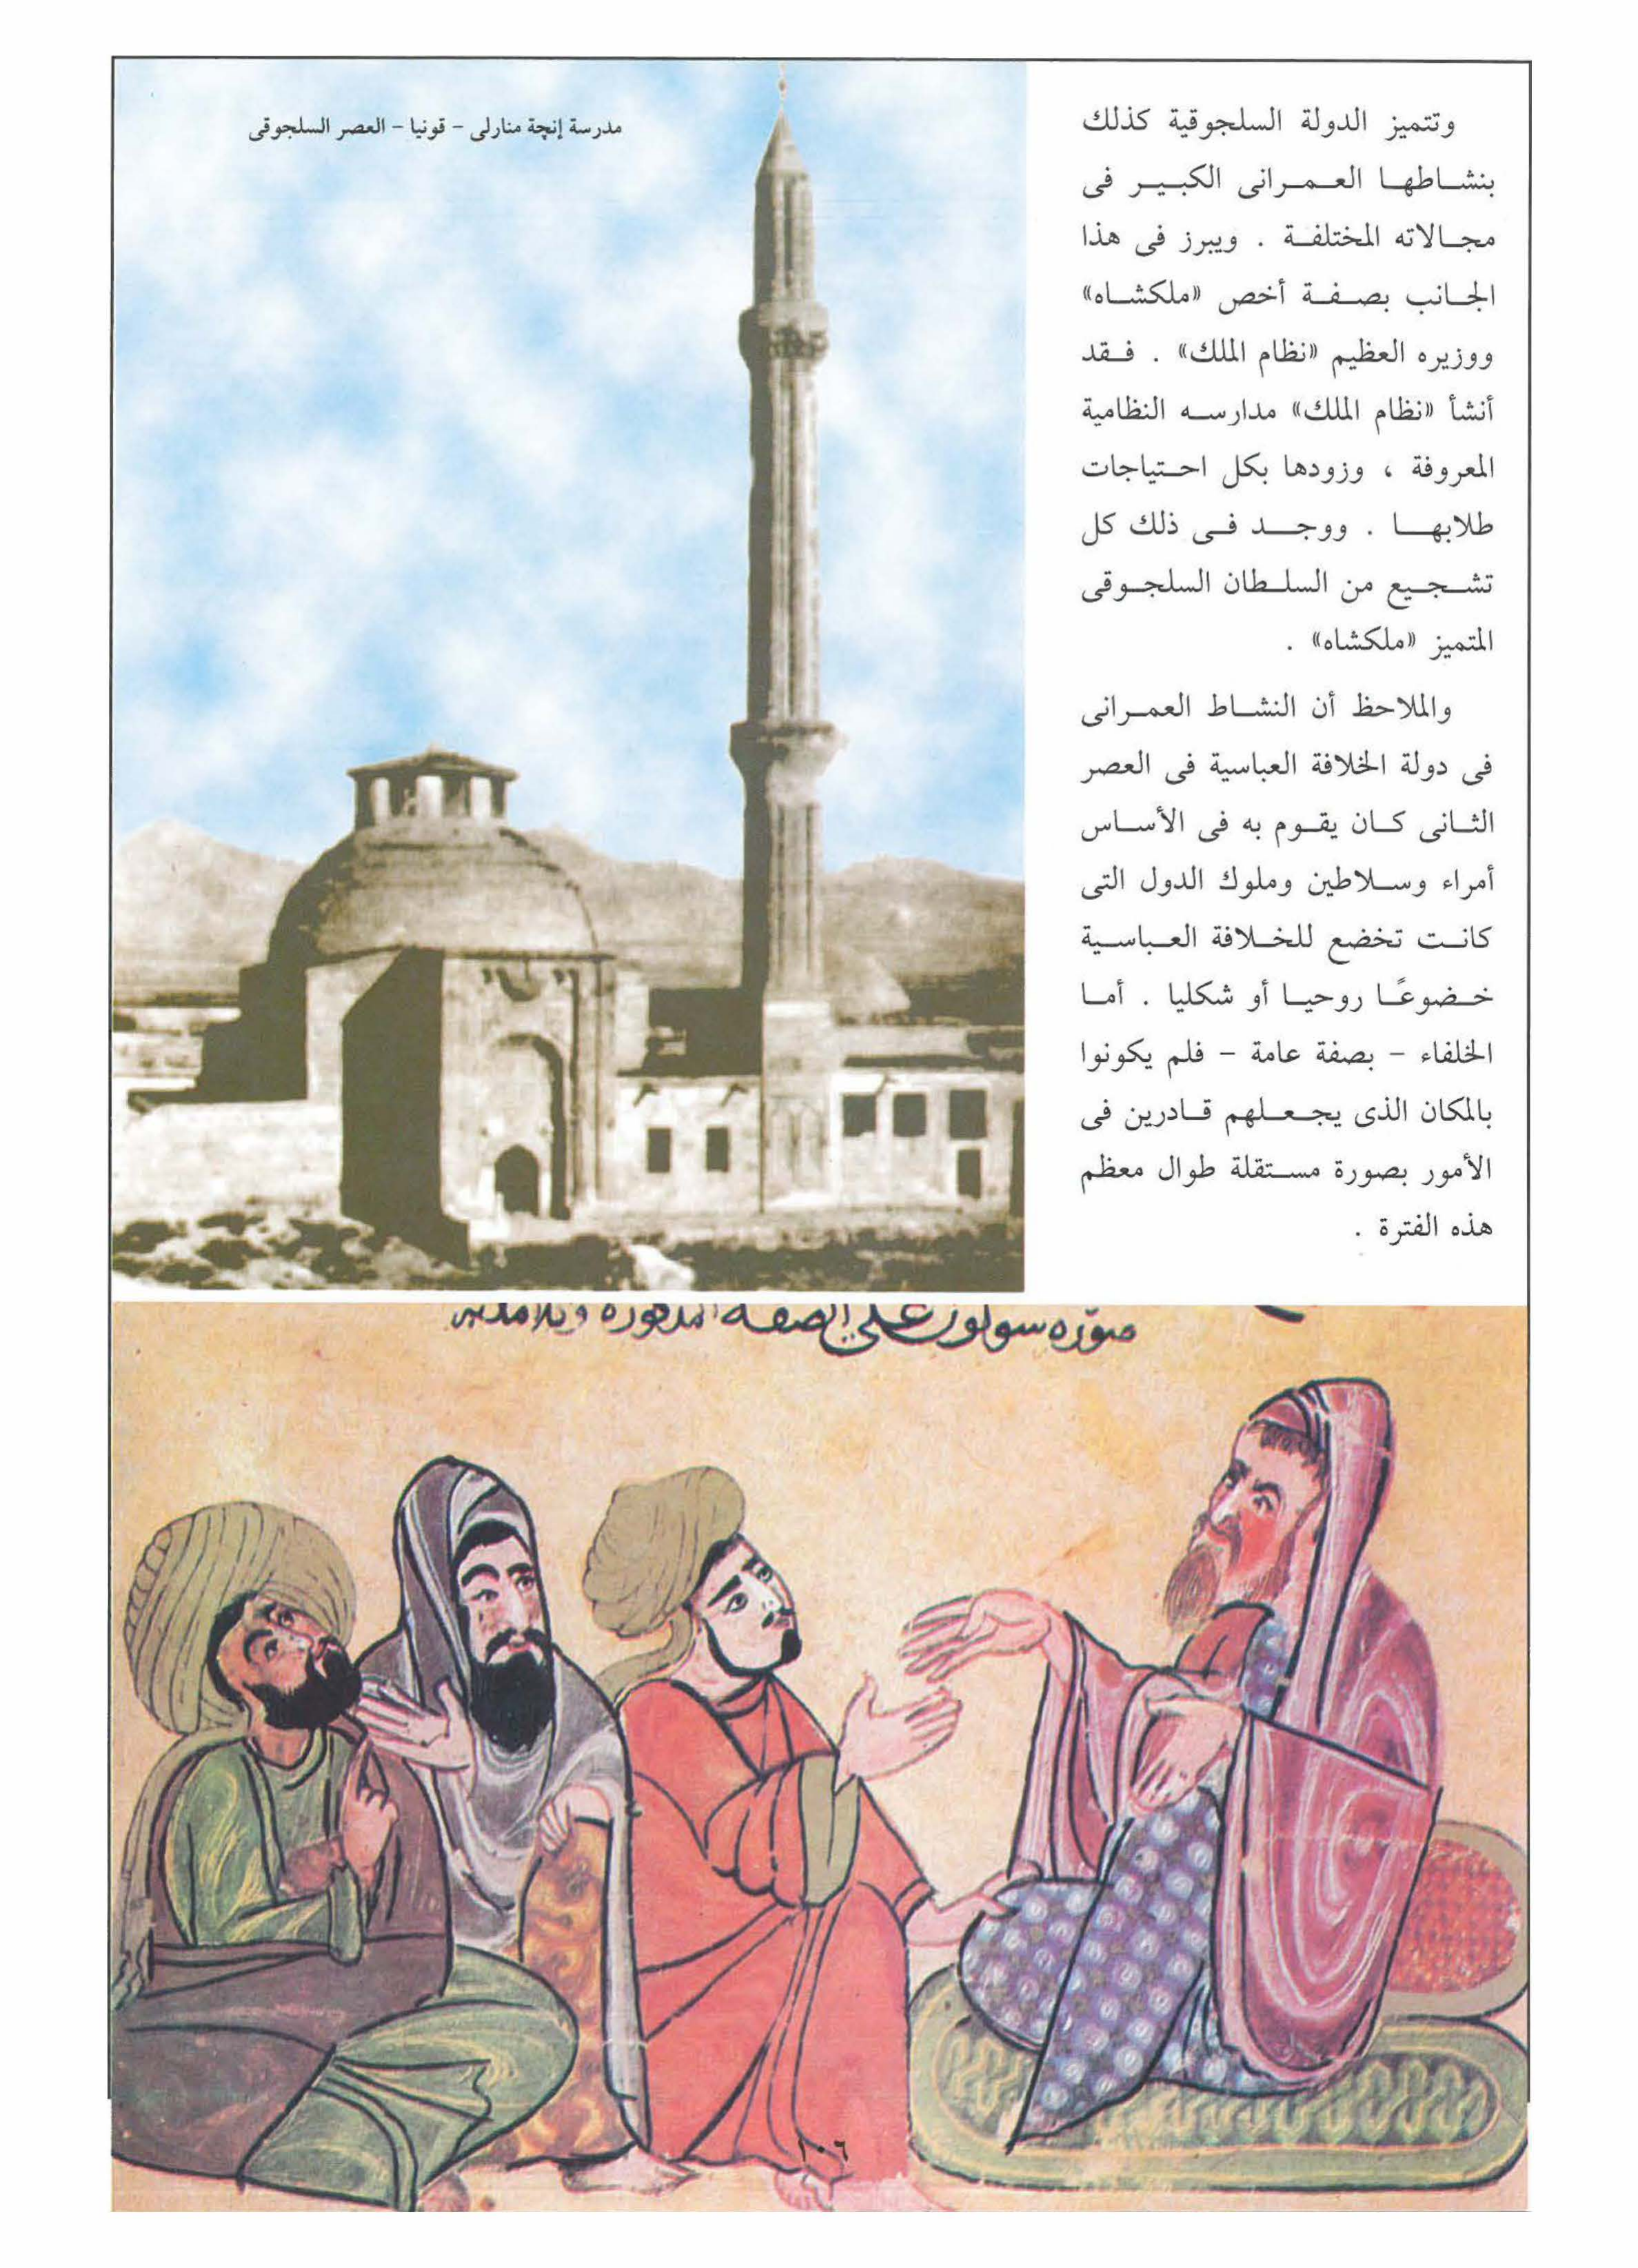 مدرسة إنچة منارلى - قونيا - العصر السلجوقى
وتتميز الدولة السلجوقية كذلك
بنشاطها العمرانى الكبير فى
مجالاته المختلفة . ويبرز فى هذا
الجانب بصفة أخص «ملكشاه»
ووزيره العظيم «نظام الملك» . فقد
أنشأ «نظام الملك» مدارسه النظامية
المعروفة ، وزودها بكل احتياجات
طلابها . ووجد فى ذلك كل
تشجيع من السلطان السلجوقى
المتميز «ملكشاه» .
والملاحظ أن النشاط العمرانى
فى دولة الخلافة العباسية فى العصر
الثانى كان يقوم به فى الأساس
أمراء وسلاطين وملوك الدول التى
كانت تخضع للخلافة العباسية
خضوعًا روحيا أو شكليا . أما
الخلفاء - بصفة عامة - فلم يكونوا
بالمكان الذى يجعلهم قادرين فى
الأمور بصورة مستقلة طوال معظم
هذه الفترة .
صورة سولون على الصفة المذكورة وتلامذته
١٠٦